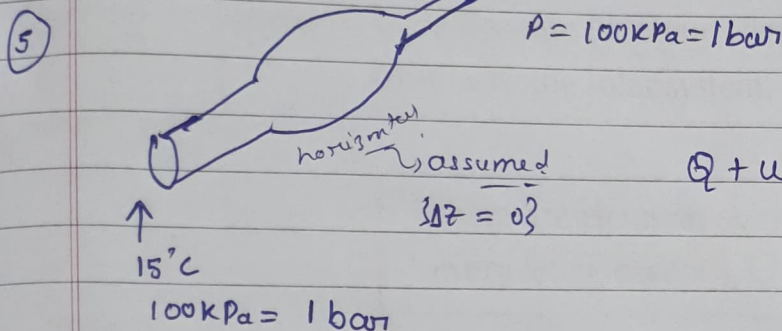 5
P = 100KPa = 1bar
horizontal
assumed
{ΔZ = 0}
Q + u
15°C
100KPa = 1 bar